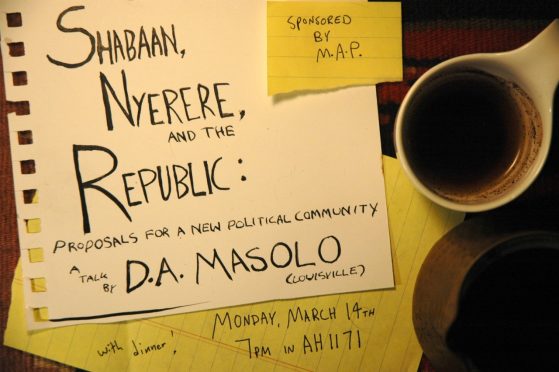 SHABAAN,
NYERERE,
AND THE
REPUBLIC:
PROPOSALS FOR A NEW POLITICAL COMMUNITY
A TALK BY D.A. MASOLO
(LOUISVILLE)
SPONSORED
BY
M.A.P.
MONDAY, MARCH 14TH
7PM IN AH 1171
with dinner!